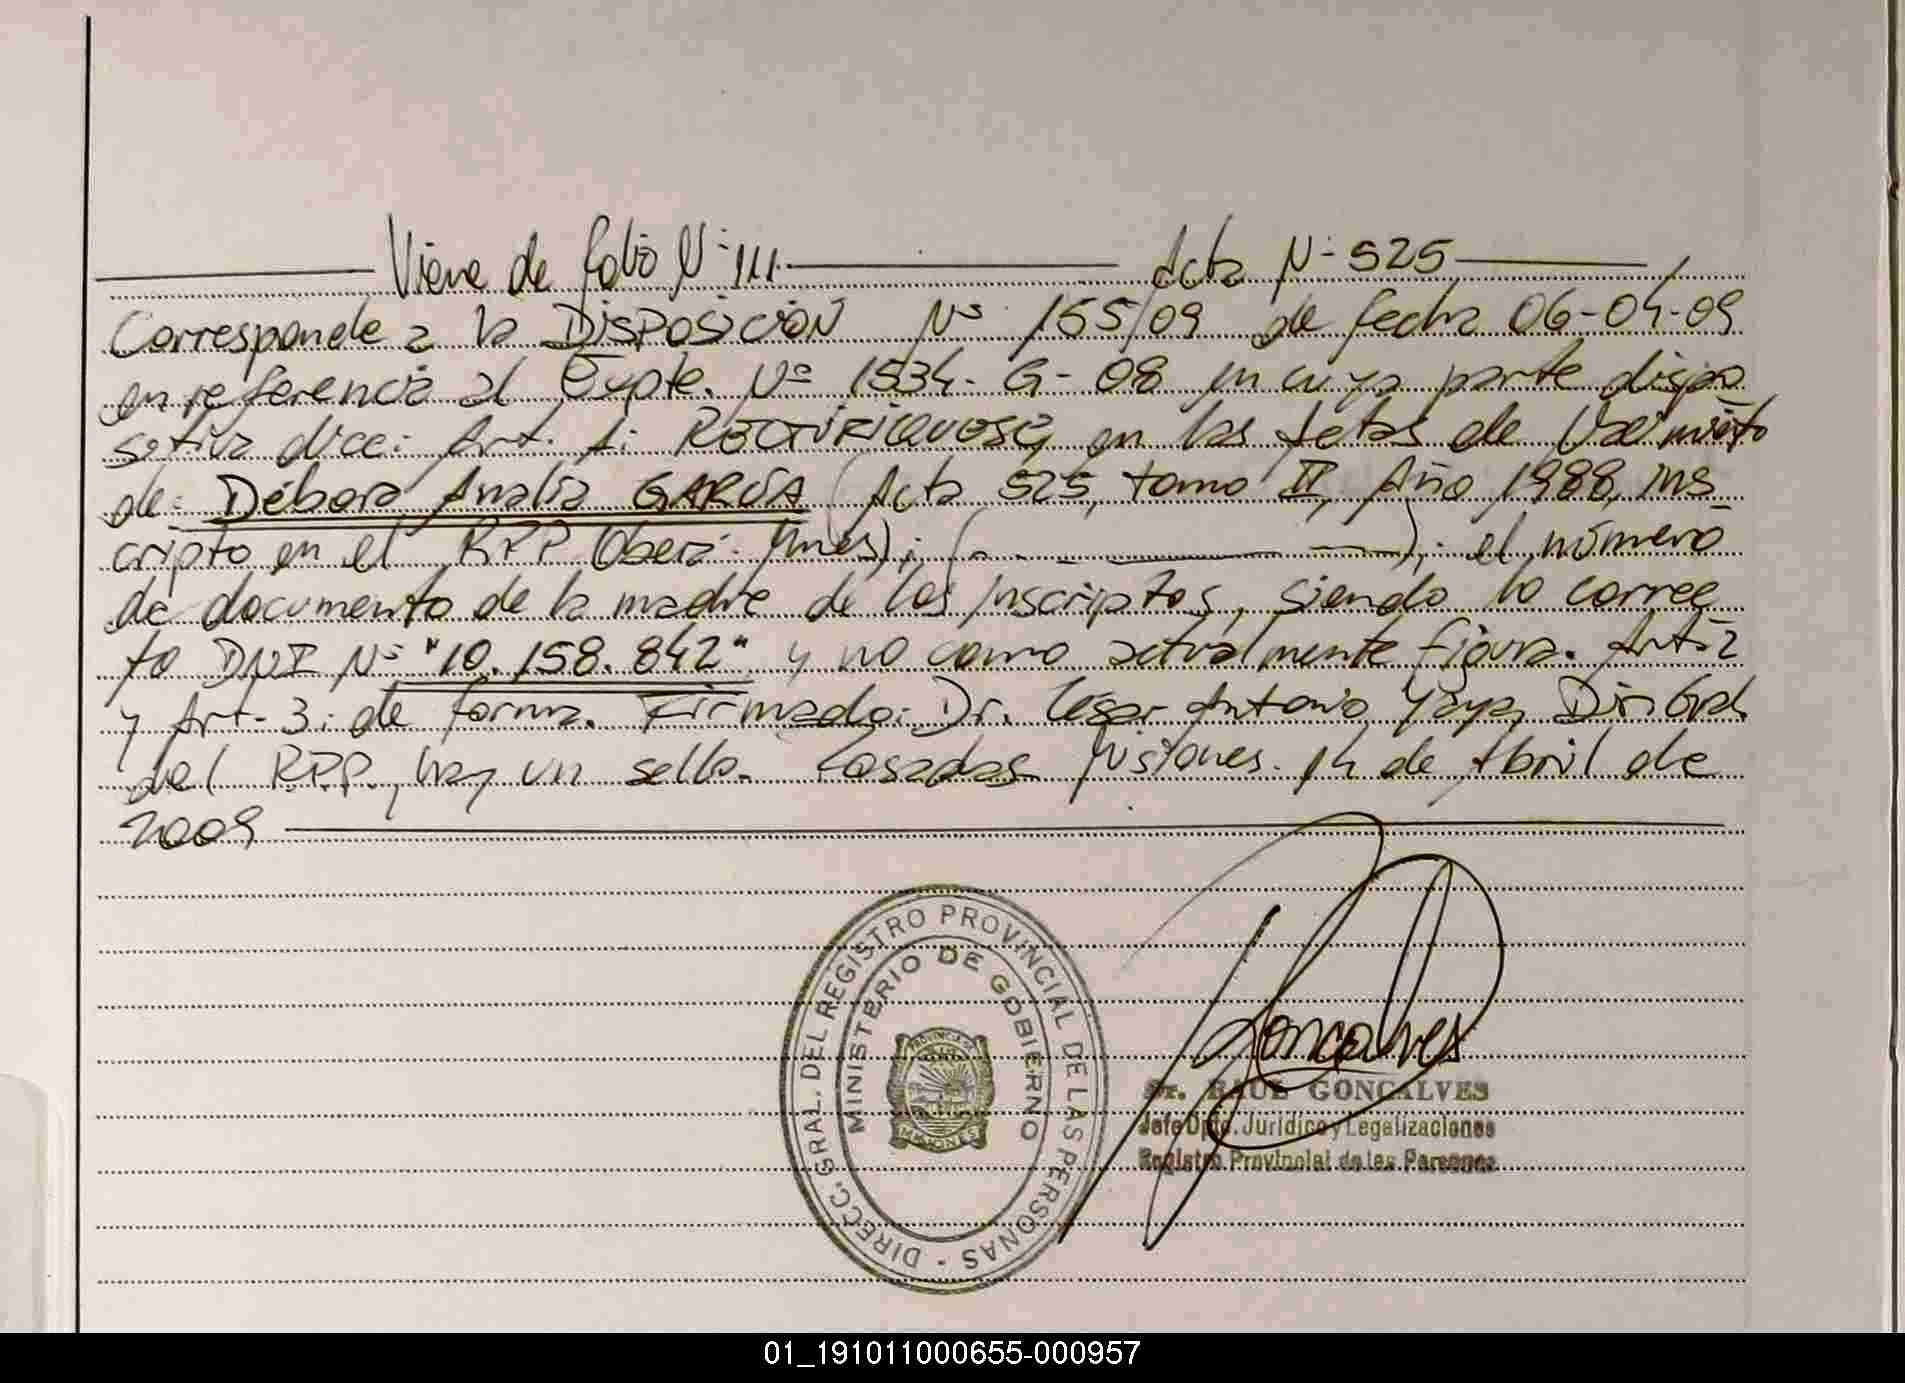 Viene de folio Nº 111. Acta Nº 525
Corresponde a la DISPOSICIÓN Nº 155/09 de fecha 06-04-09
en referencia al Expte. Nº 1534-G-08 en cuya parte dispo
sitiva dice: Art. 1: RECTIFIQUESE, en las Actas de Nacimiento
de: Débora Analía GARCÍA (Acta 525, tomo II, Año 1988, ins
cripto en el RPP Oberá. Mnes); ( ); el número
de documento de la madre de los inscriptos, siendo lo correc
to DNI Nº "10.158.842" y no como actualmente figura. Art. 2
y Art. 3: de forma. Firmado: Dr. César Antonio Yaya, Dir. Gral
del R.P.P., hay un sello. Posadas Misiones. 14 de Abril de
2009
DIRECC. GRAL. DEL REGISTRO PROVINCIAL DE LAS PERSONAS -
MINISTERIO DE GOBIERNO
PROVINCIA DE
MISIONES
Goncalves
Dr. RAUL GONCALVES
Jefe Dpto. Jurídico y Legalizaciones
Registro Provincial de las Personas
01_191011000655-000957